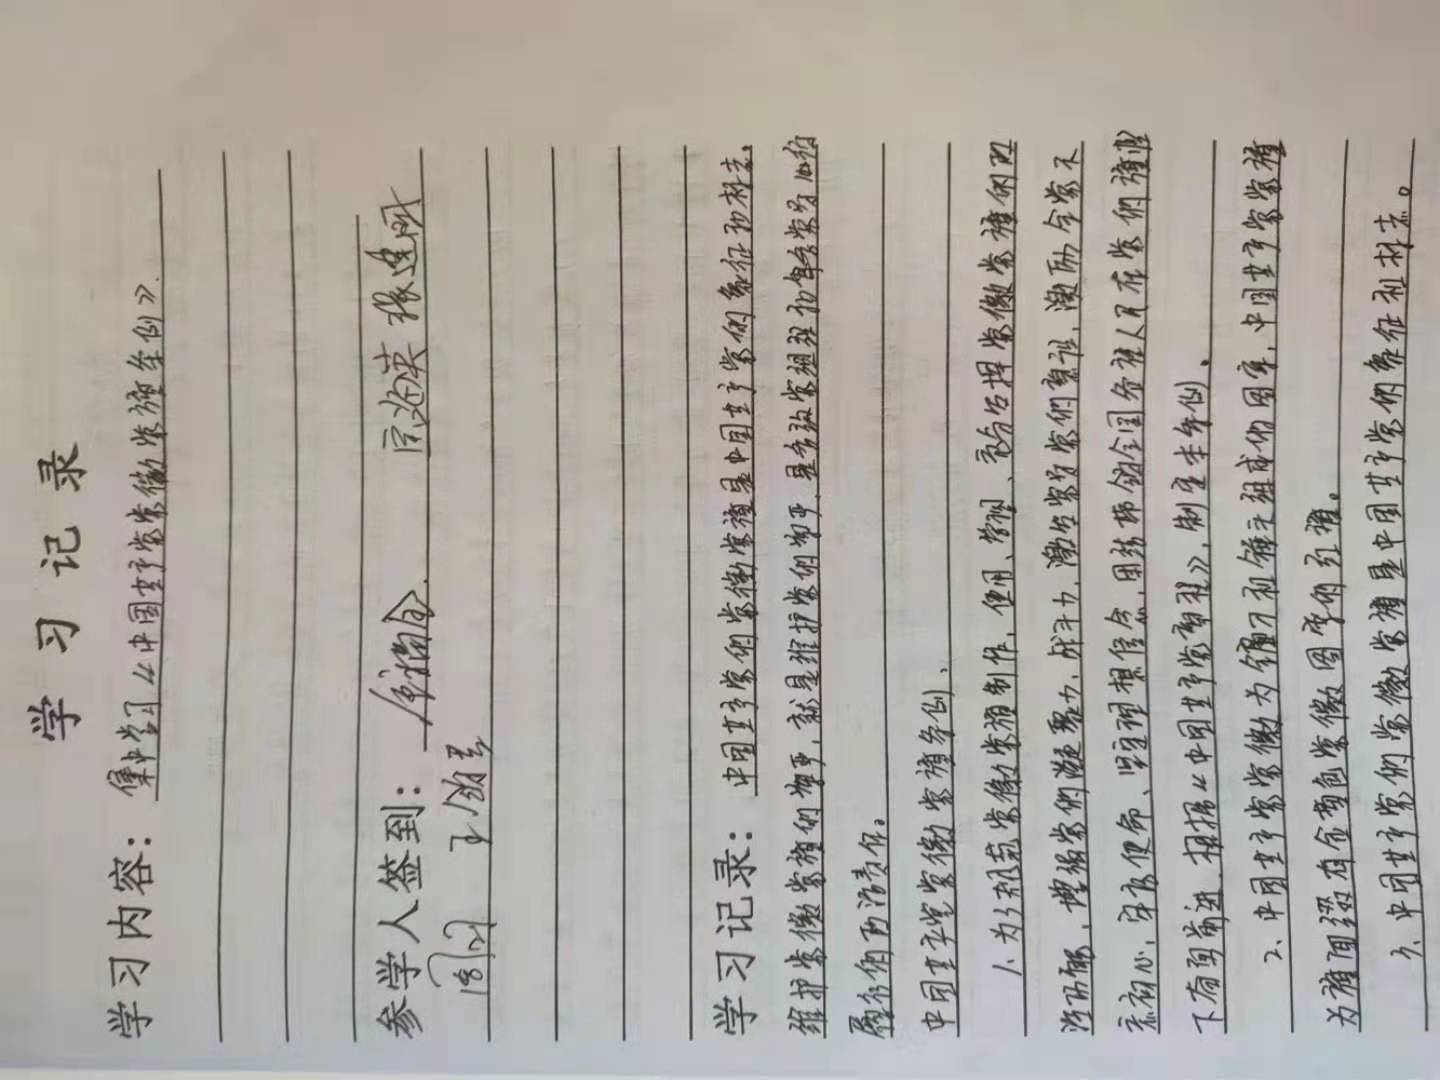 学习记录
学习内容：集中学习《中国共产党党徽党旗条例》.
参学人签到：
王
学习记录：中国共产党的党徽党旗是中国共产党的象征和标志。
维护党徽党旗的尊严，就是维护党的尊严，是各级党组织和每名党员必须
履行的政治责任。
中国共产党党徽党旗条例，
1、为了规范党徽党旗制作、使用、管理、充分发挥党徽党旗的政
治功能，增强党的凝聚力、战斗力，激发党员党的意识，激励全党不
忘初心，牢记使命、坚定理想信念，团结带领全国各族人民在党的旗帜
下奋勇前进、根据《中国共产党章程》，制定本条例。
2、中国共产党党徽为镰刀和锤头组成的图案，中国共产党党旗
为旗面缀有金黄色党徽图案的红旗。
3、中国共产党的党徽党旗是中国共产党的象征和标志。